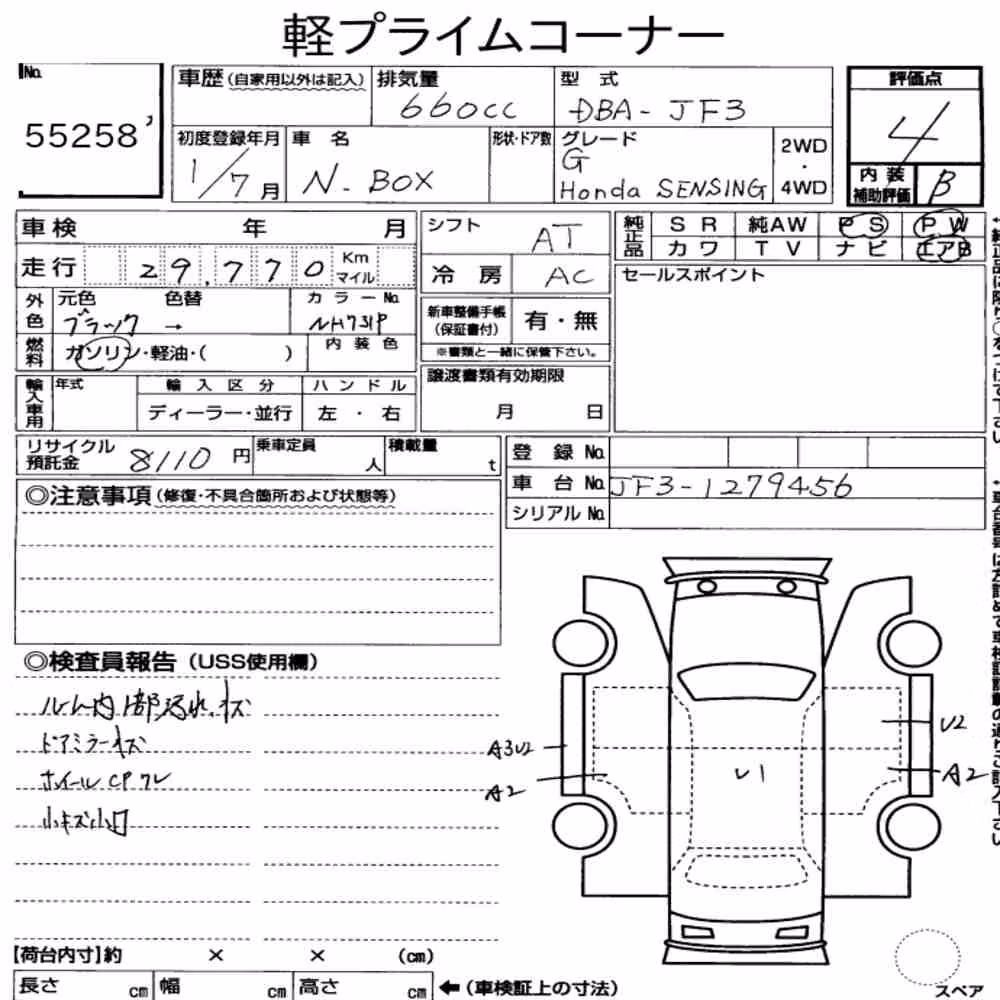 軽プライムコーナー
No. 55258
車歴 (自家用以外は記入)
排気量 660cc
型 式 DBA-JF3
評価点 4
初度登録年月 1/7月
車 名 N-BOX
形状・ドア数
グレード G Honda SENSING
2WD・4WD
内 装 補助評価 B
車検 年 月
走行 29,770 Km マイル
外色 元色 ブラック → 色替
カラーNo. NH731P
燃料 ガソリン・軽油・( )
内 装 色
輸入車用 年式
輸 入 区 分 ディーラー・並行
ハ ン ド ル 左 ・ 右
シフト AT
冷 房 AC
新車整備手帳 (保証書付) 有・無
※書類と一緒に保管下さい。
譲渡書類有効期限
月 日
純正品 S R 純AW P S P W
カ ワ T V ナ ビ エアB
セールスポイント
リサイクル預託金 8110 円
乗車定員 人
積載量 t
登 録 No.
車 台 No. JF3-1279456
シリアル No.
◎注意事項 (修復・不具合箇所および状態等)
◎検査員報告 (USS使用欄)
ルーム内 1部汚れ、キズ
ドアミラーキズ
ホイールCPワレ
小キズ小凹
A3U2
A2
U1
U2
A2
【荷台内寸】約 × × (cm)
長さ cm 幅 cm 高さ cm
← (車検証上の寸法)
スペア